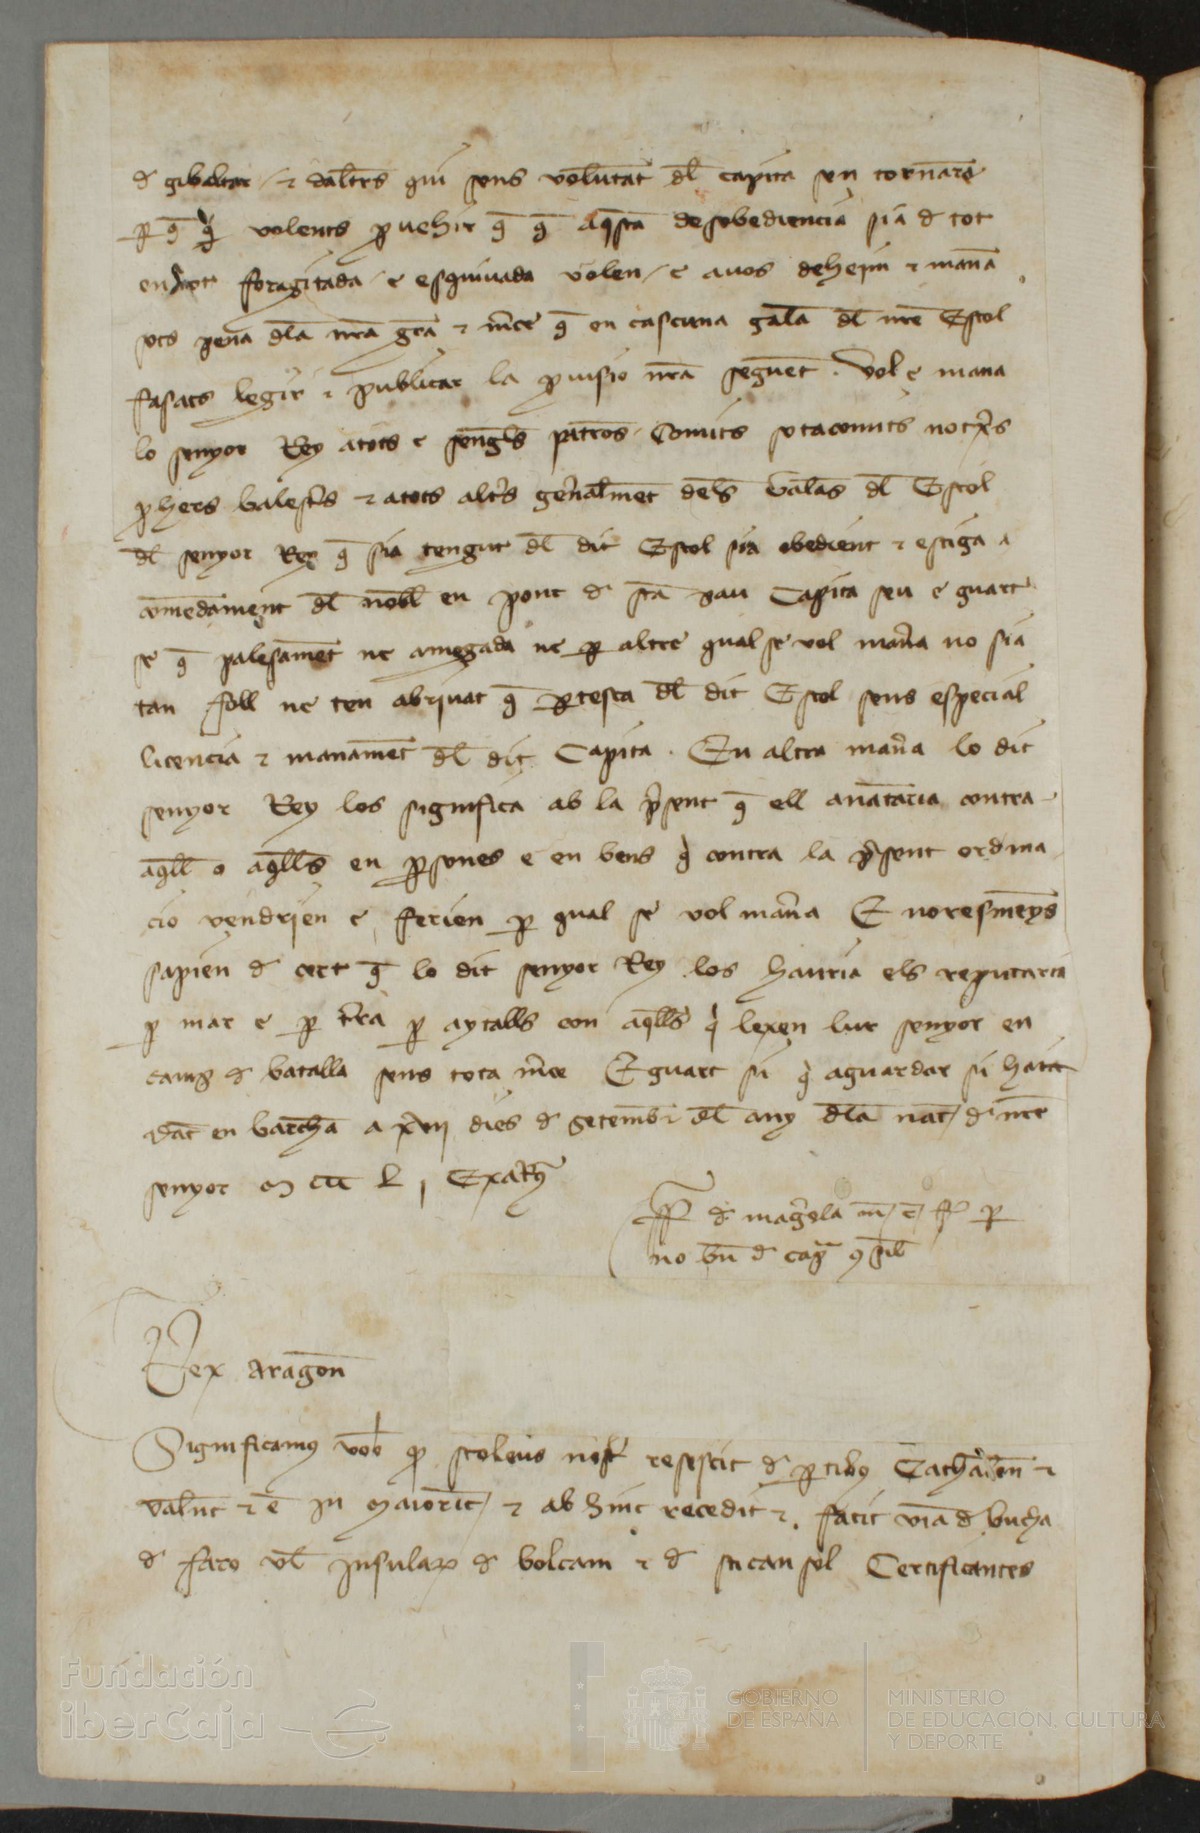 d gibaltar / & dalt̄rs qui sens volūtat dl̄ capita sen tornarē
p q̄ volents p̱vehir q̄ q̄ aq̄sta desobediencia sia d tot
en tot foragitada / e esquivada volen / e avos dehem & manā
sots pena dl̄a nr̄a gr̄a & m̄ce q̄ en cascuna galea dl̄ nr̄e Estol
fasats legir & publicar la p̱visio nr̄a seguēt . Vol e mana
lo senyor Rey atots e sengl̄s patrons Comits sotacomits notx̄rs
p̱hers balest̄rs & atots alt̄rs gēnalmēt dels Galeas dl̄ Estol
dl̄ senyor Rey q̄ sia tengut dl̄ dit Estol sia obedient & estiga a
comēdament dl̄ nobl̄ en ponc d sc̄a pau Capita seu e guart
se q̄ palesamēt ne amagada ne p altre qual se vol man̄a no sia
tan foll ne ten abrivat q̄ p̱tesca dl̄ dit Estol sens especial
licencia & manamēt dl̄ dit Capita . En altra man̄a lo dit
senyor Rey los significa ab la p̄sent q̄ ell anātaria contra
aq̄ll o aq̄lls en p̱sones e en bens q̄ contra la p̄sent ordina
cio vendrien e ferien p qual se vol man̄a E noresmēys
sapien d cert q̄ lo dit senyor Rey los hauria els reputaria
p mar e p t̄ra p aytalls con aq̄lls q̄ lexen lur senyor en
camp d batalla sens tota m̄ce E guart si q̄ aguardar si haia
dat̄ en barch̄a a xvii dies d setembr̄ dl̄ any dl̄a nat̄ / d nr̄e
senyor M ccc L j Exat̄
no bn̄
Rex Aragon̄
Significamus vob̄ q̱ stoleus nost̄ d p̱tibus Cathalōn &
valn̄t & ē in Maioric̄ / & ab hinc recedit & facit viā d bucha
d faro vl̄ Insular̄ d bolcam & d Certificantes
Fundación
iberCaja
GOBIERNO
DE ESPAÑA
MINISTERIO
DE EDUCACIÓN, CULTURA
Y DEPORTE